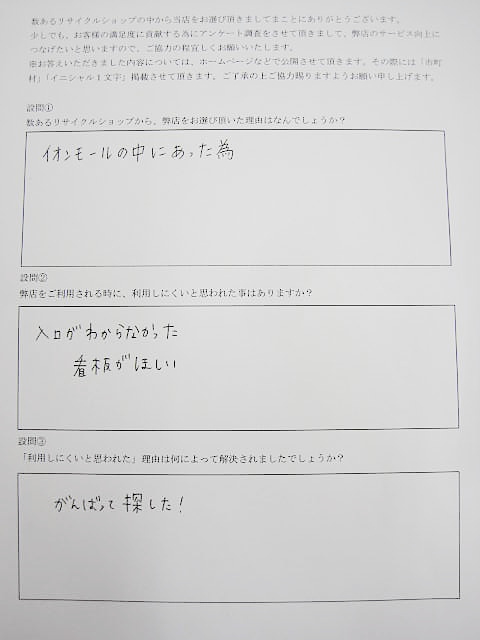 数あるリサイクルショップの中から当店をお選び頂きましてまことにありがとうございます。
少しでも、お客様の満足度に貢献する為にアンケート調査をさせて頂きまして、弊店のサービス向上に
つなげたいと思いますので、ご協力の程宜しくお願いいたします。
※お答えいただきました内容については、ホームページなどで公開させて頂きます。その際には「市町
村」「イニシャル1文字」掲載させて頂きます。ご了承の上ご協力賜りますようお願い申し上げます。
設問①
数あるリサイクルショップから、弊店をお選び頂いた理由はなんでしょうか？
イオンモールの中にあった為
設問②
弊店をご利用される時に、利用しにくいと思われた事はありますか？
入口がわからなかった
看板がほしい
設問③
「利用しにくいと思われた」理由は何によって解決されましたでしょうか？
がんばって探した！